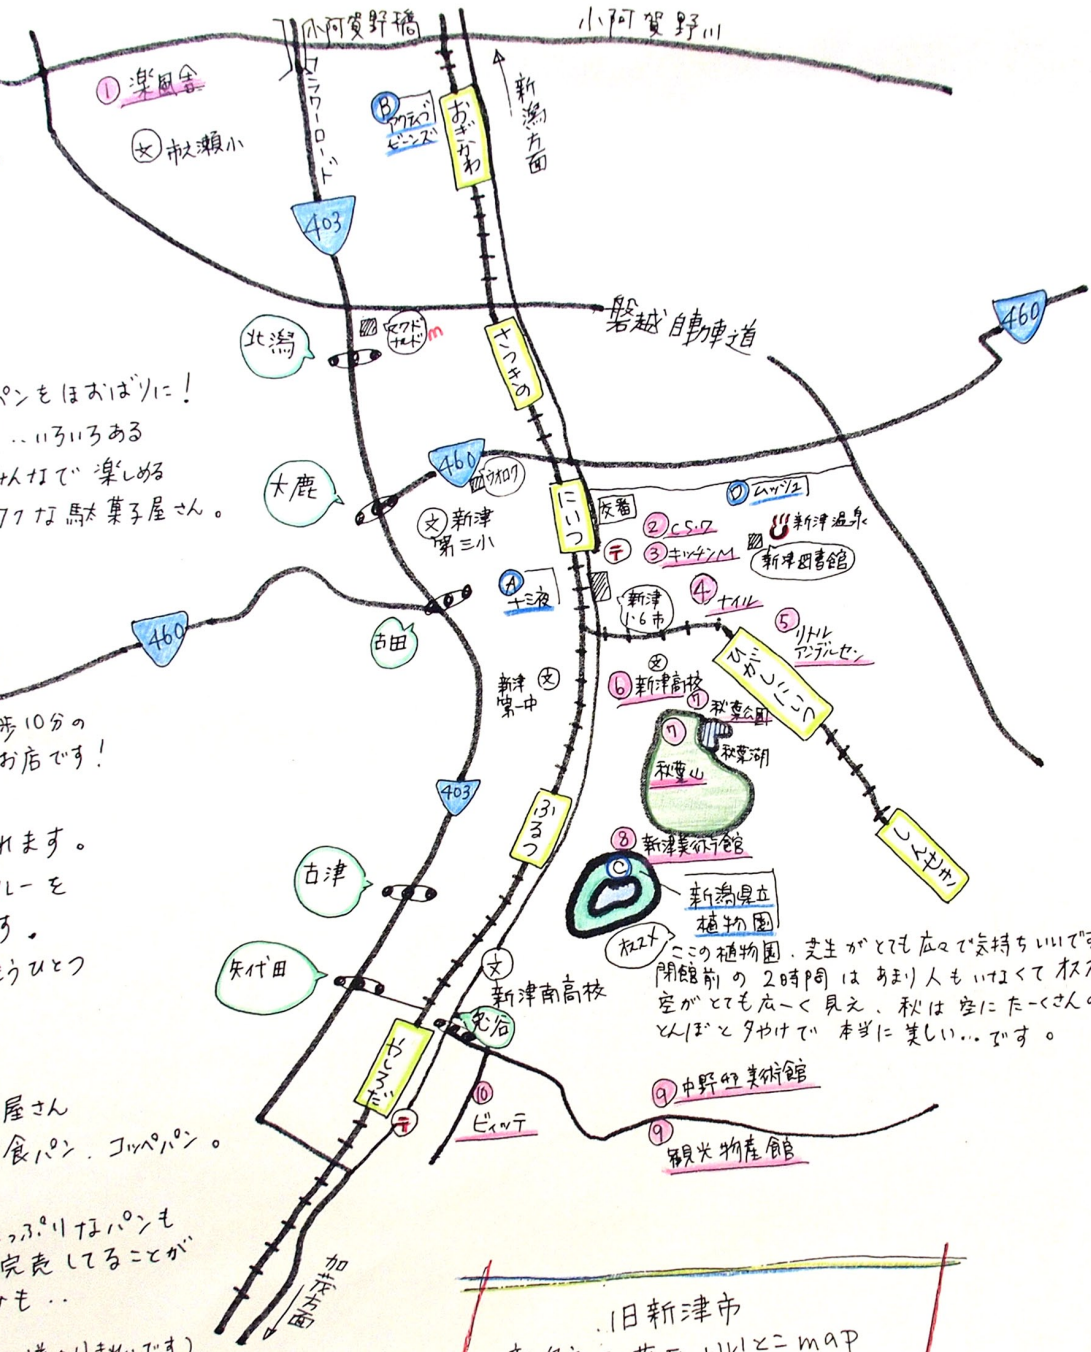 小阿賀野橋
小阿賀野川
① 楽風舎
フラワーロード
Ⓑ
アクティブ
ビーンズ
おぎかわ
新潟方面
文 市之瀬小
403
磐越自動車道
460
北潟
マクド
ナルド
m
さつきの
パンをほおばりに!
‥いろいろある
みんなで楽しめる
な駄菓子屋さん。
大鹿
460
ウオロク
文 新津
第三小
にいつ
交番
〒
② C.S.ワ
③ キッチンM
Ⓓ ムッシュ
新津温泉
新津図書館
Ⓐ
十三夜
新津
1・6市
④
ナイル
⑤
リトル
アンデルセン
古田
460
ひがしにいつ
文
新津
第一中
文
⑥ 新津高校
⑦ 秋葉公園
⑦
秋葉山
秋葉湖
歩10分の
お店です!
403
ふるつ
しんせき
れます。
ルーを
す。
もうひとつ
古津
⑧ 新津美術館
Ⓒ
新潟県立
植物園
オススメ
ここの植物園、芝生がとても広々で気持ちいいです
閉館前の2時間はあまり人もいなくてオスス
空がとても広ーく見え、秋は空にたーくさんの
とんぼと夕やけで本当に美しい…です。
矢代田
文
新津南高校
やしろだ
〒
⑩
ビィッテ
⑨ 中野邸美術館
⑨
観光物産館
屋さん
食パン、コッペパン。
っぷりなパンも
完売してることが
も‥
加茂方面
旧新津市
map